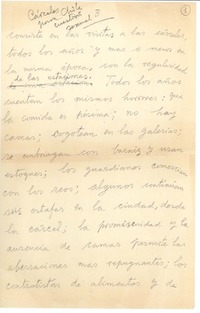 Cárceles
para Chile
cuestión
sexual. 3
1
consiste en las visitas a las cárceles,
todos los años y mas o menos en
la misma época, con la regularidad
de las estaciones.
Todos los años
cuentan los mismos horrores: que
la comida es pésima; no hay
camas; azotean en las galerías;
se embriagan con barniz y usan
estoques; los guardianes comercian
con los reos; algunos continúan
sus estafas en la ciudad, desde
la cárcel; la promiscuidad y la
ausencia de camas permite las
aberraciones mas repugnantes; los
contratistas de alimentos y de